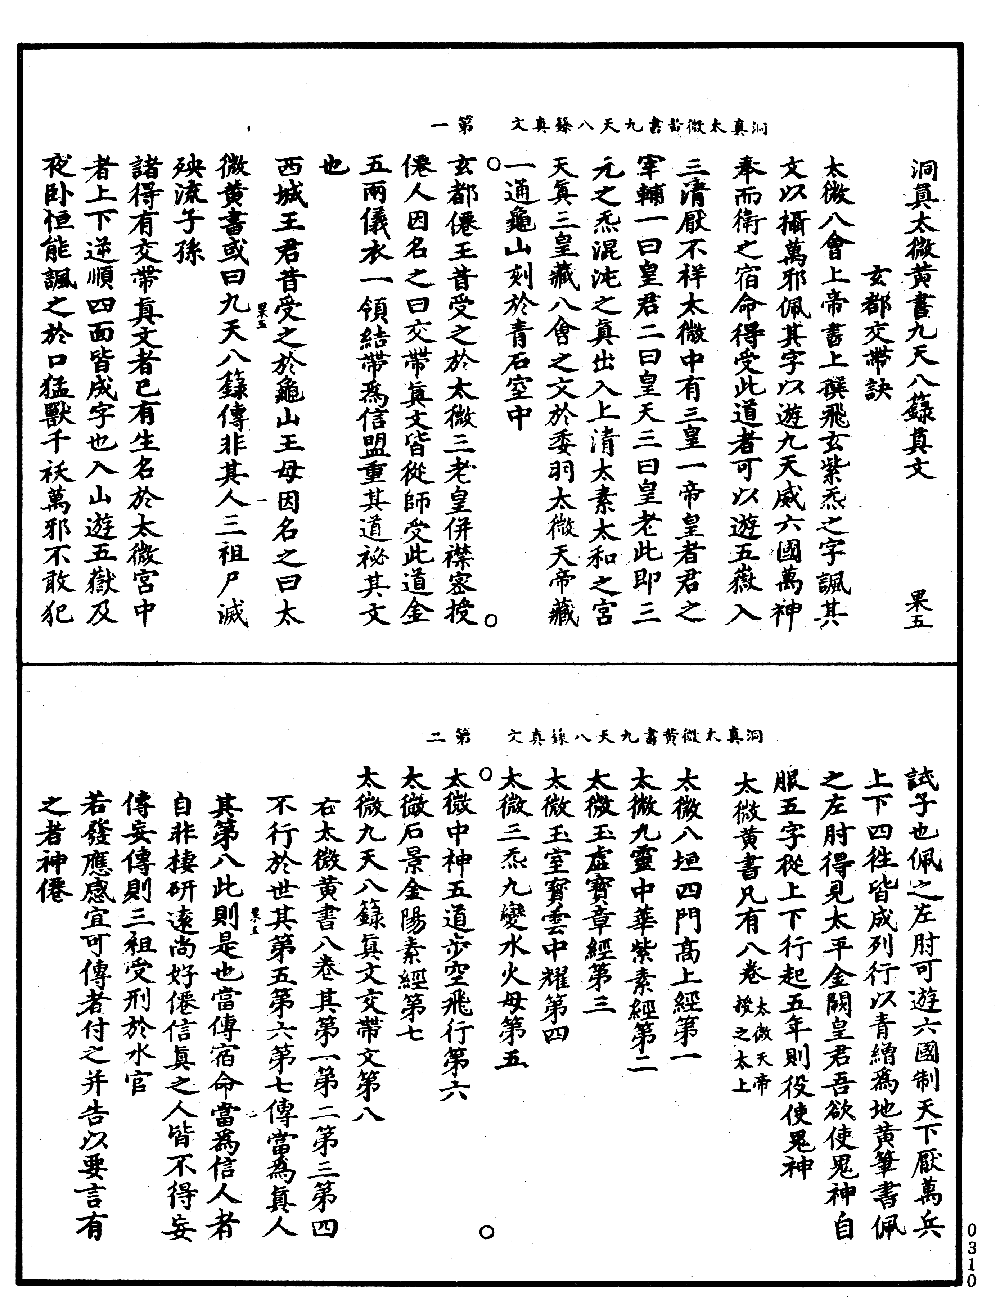 洞真太微黃書九天八籙真文　第一
洞真太微黃書九天八籙真文　果五
玄都交帶訣
太微八會上帝書上撰飛玄紫炁之字諷其
文以攝萬邪佩其字以遊九天威六國萬神
奉而衛之宿命得受此道者可以遊五嶽入
三清厭不祥太微中有三皇一帝皇者君之
宰輔一曰皇君二曰皇天三曰皇老此即三
元之炁混沌之真出入上清太素太和之宮
天真三皇藏八會之文於委羽太微天帝藏
一通龜山刻於青石空中
玄都僊王昔受之於太微三老皇併襟密授
僊人因名之曰交帶真文皆從師受此道金
五兩儀衣一領結帶為信盟重其道祕其文
也
西城王君昔受之於龜山王母因名之曰太
果五
微黃書或曰九天八籙傳非其人三祖尸滅
殃流子孫
諸得有交帶真文者已有生名於太微宮中
者上下逆順四面皆成字也入山遊五嶽及
夜卧恒能諷之於口猛獸千祅萬邪不敢犯
洞真太微黃書九天八籙真文　第二
試子也佩之左肘可遊六國制天下厭萬兵
上下四徃皆成列行以青繒為地黃筆書佩
之左肘得見太平金闕皇君吾欲使鬼神自
服五字從上下行起五年則役使鬼神
太微黃書凡有八卷太微天帝授之太上
太微八垣四門高上經第一
太微九靈中華紫素經第二
太微玉虛寶章經第三
太微玉堂寶雲中耀第四
太微三炁九變水火母第五
太微中神五道步空飛行第六
太微石景金陽素經第七
太微九天八籙真文交帶文第八
右太微黃書八卷其第一第二第三第四
不行於世其第五第六第七傳當為真人
果五
其第八此則是也當傳宿命當為信人者
自非棲研遠尚好僊信真之人皆不得妄
傳妄傳則三祖受刑於水官
若發應感宜可傳者付之并告以要言有
之者神僊
0310